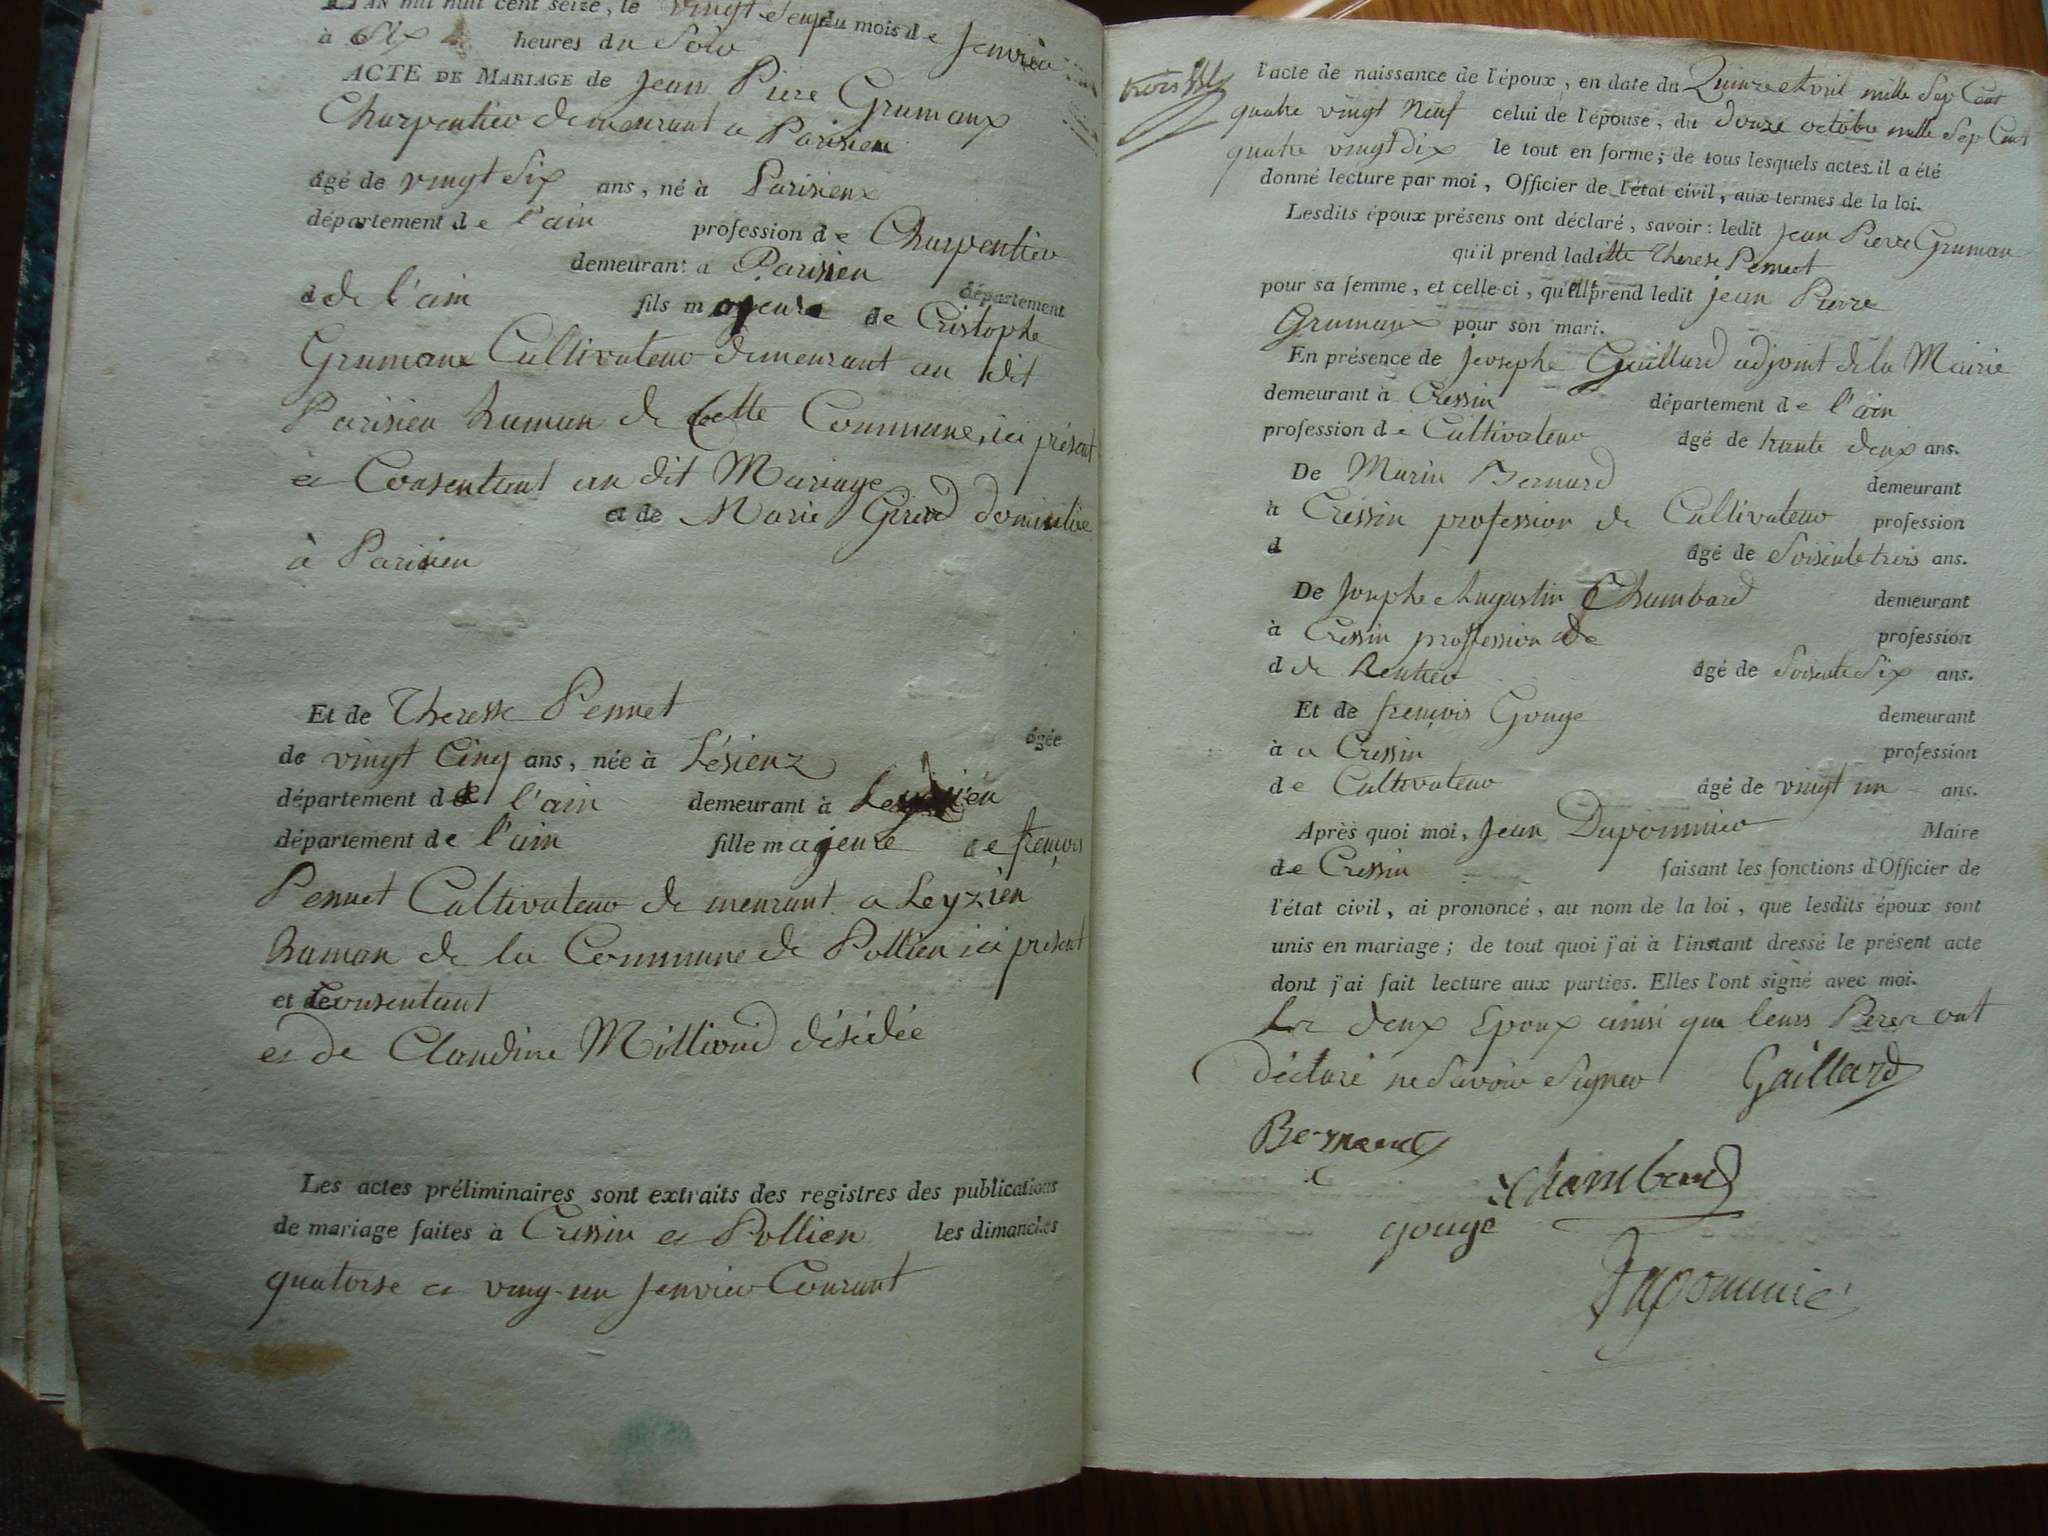 L'AN mil huit cent seize, le vingt Sept du mois de Janvier
à Six heures du Soir
ACTE DE MARIAGE de Jean Piere Grumaux
Charpentier demeurant a Parisieu
âgé de vingt Six ans, né à Parisieux
département de l'ain profession de Charpentier
demeurant a Parisieu département
d de l'ain fils majeure de Cristophe
Grumaux Cultivateur demeurant au dit
Parisieu hamau de Cette Commune, ici présent
et Consentant au dit Mariage
et de Marie Girod domiciliée
à Parisieu
Et de Theresse Pennet âgée
de vingt Cinq ans, née à Lésieux
département de l'ain demeurant à
département de l'ain fille majeure de françois
Pennet Cultivateur demeurant a Leyzieu
hamau de la Commune de Pollieu ici présent
et Consentant
et de Claudine Milliand désidée
Les actes préliminaires sont extraits des registres des publications
de mariage faites à Cressin et Pollieu les dimanches
quatorse et ving-un Janvier Courant
l'acte de naissance de l'époux, en date du Quinze Avril mille Sep Cent
quatre vingt Neuf celui de l'épouse, du douze octobre mille Sep Cent
quatre vingt dix le tout en forme; de tous lesquels actes il a été
donné lecture par moi, Officier de l'état civil, aux termes de la loi.
Lesdits époux présens ont déclaré, savoir: ledit Jean Pierre Grumau
qu'il prend laditte Therese Pennet
pour sa femme, et celle-ci, qu'elle prend ledit Jean Pierre
Grumaux pour son mari.
En présence de Joosephe Gaillard adjoint de la Mairie
demeurant à Cressin département de l'ain
profession de Cultivateur âgé de trante deux ans.
De Marin Bernard demeurant
à Cressin profession de Cultivateur profession
d âgé de Soisente trois ans.
De Josephe Augustin Chambard demeurant
à Cressin proffession de profession
d de Rentier âgé de Soisente Six ans.
Et de françois Gouge demeurant
à a Cressin profession
de Cultivateur âgé de vingt un ans.
Après quoi moi, Jean Dupommier Maire
de Cressin faisant les fonctions d'Officier de
l'état civil, ai prononcé, au nom de la loi, que lesdits époux sont
unis en mariage; de tout quoi j'ai à l'instant dressé le présent acte
dont j'ai fait lecture aux parties. Elles l'ont signé avec moi.
Les deux Epoux ainsi que leurs Peres ont
déclaré ne Savoir Signer Gaillard
Bernard
Chambard
gouge
Dupommié